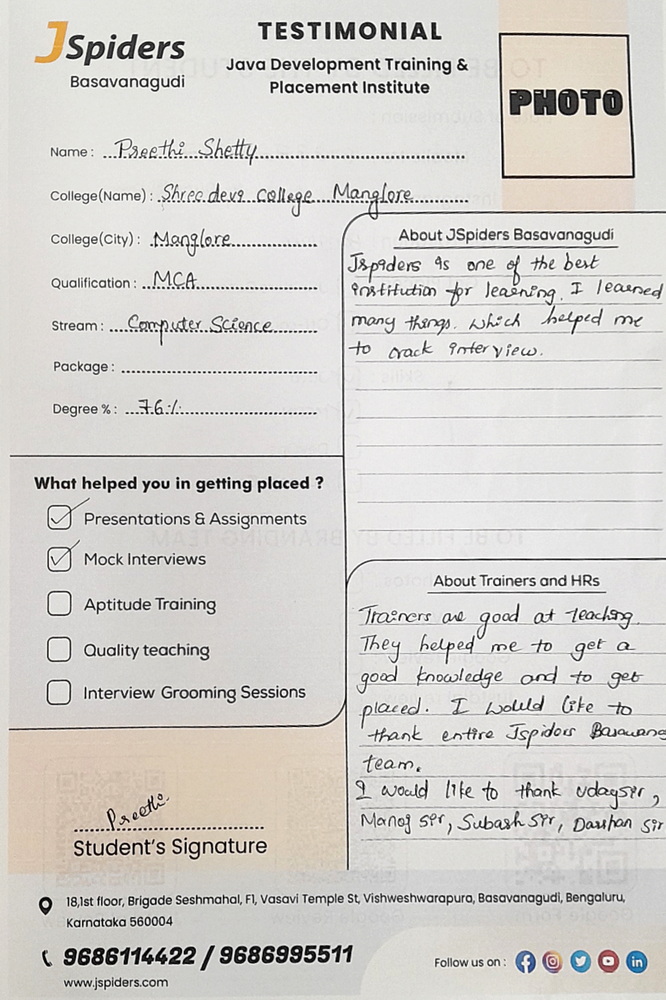 JSpiders
Basavanagudi
TESTIMONIAL
Java Development Training &
Placement Institute
PHOTO
Name : Preethi Shetty
College(Name) : Shree devi college Manglore
College(City) : Manglore
Qualification : MCA
Stream : Computer Science
Package :
Degree % : 76%
What helped you in getting placed ?
Presentations & Assignments
Mock Interviews
Aptitude Training
Quality teaching
Interview Grooming Sessions
Preethi
Student's Signature
About JSpiders Basavanagudi
Jspiders is one of the best
institution for learning. I learned
many things. which helped me
to crack interview.
About Trainers and HRs
Trainers are good at teaching.
They helped me to get a
good knowledge and to get
placed. I would like to
thank entire Jspiders Basavang
team.
I would like to thank Udaysir,
Manoj sir, Subash Sir, Darshan Sir
18,1st floor, Brigade Seshmahal, F1, Vasavi Temple St, Vishweshwarapura, Basavanagudi, Bengaluru,
Karnataka 560004
9686114422 / 9686995511
www.jspiders.com
Follow us on :